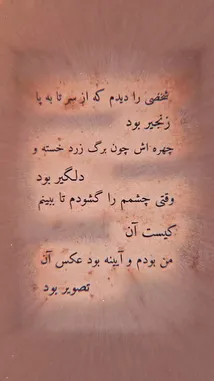 شخصی را دیدم که از سر تا به پا
زنجیر بود
چهره اش چون برگ زرد خسته و
دلگیر بود
وقتی چشمم را گشودم تا ببینم
کیست آن
من بودم و آیینه بود عکس آن
تصویر بود